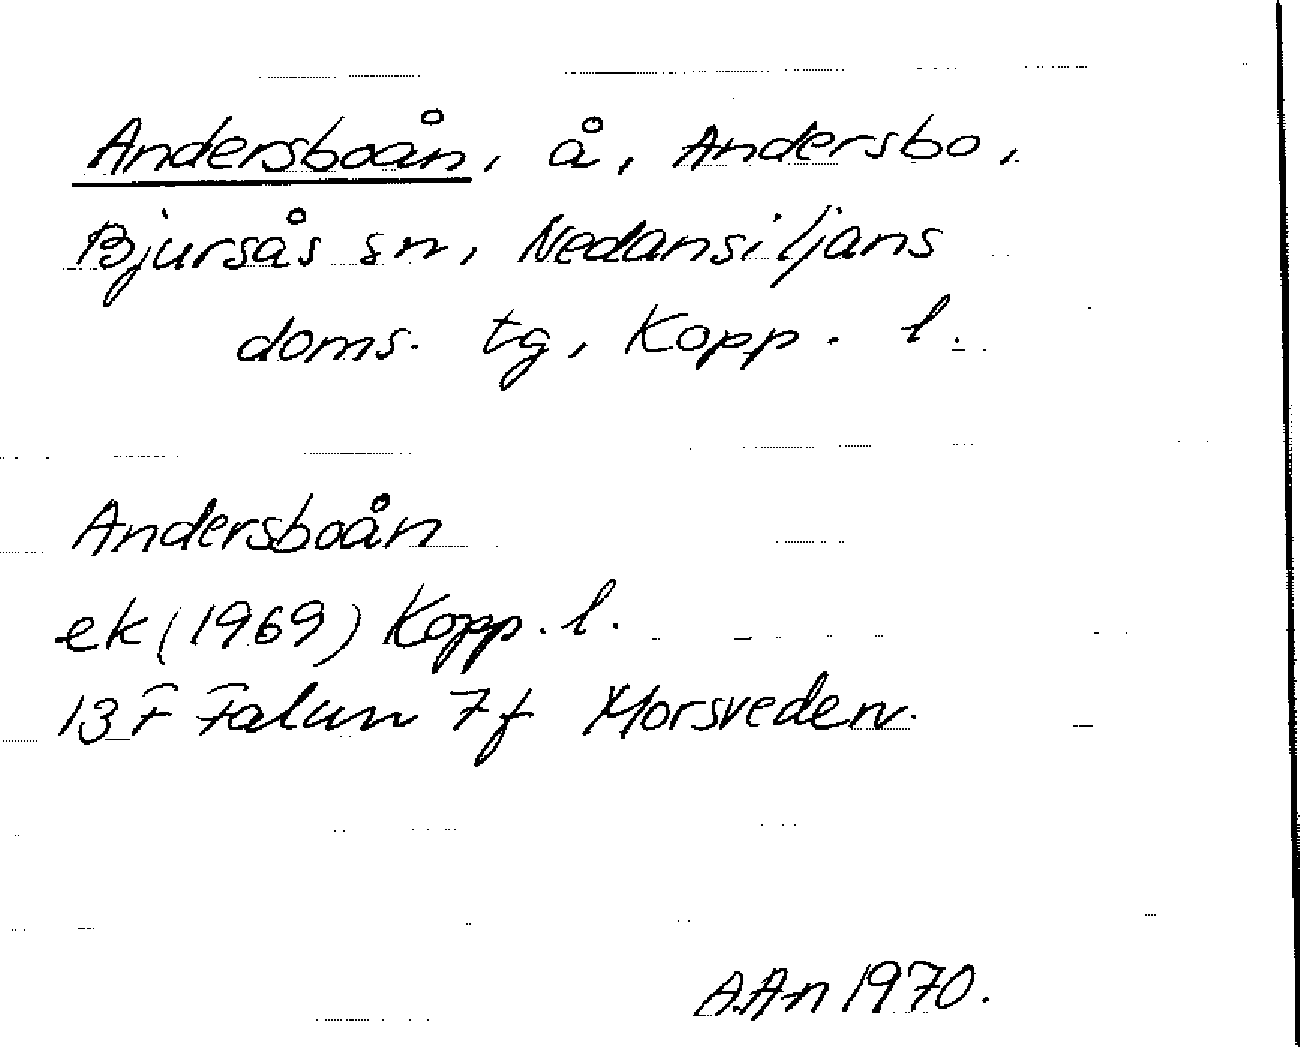 Andersboån, å, Andersbo,
Bjursås sn, Nedansiljans
doms. tg, Kopp. l.
Andersboån
ek (1969) Kopp. l.
13 F Falun 7f Morsveden.
A.An 1970.